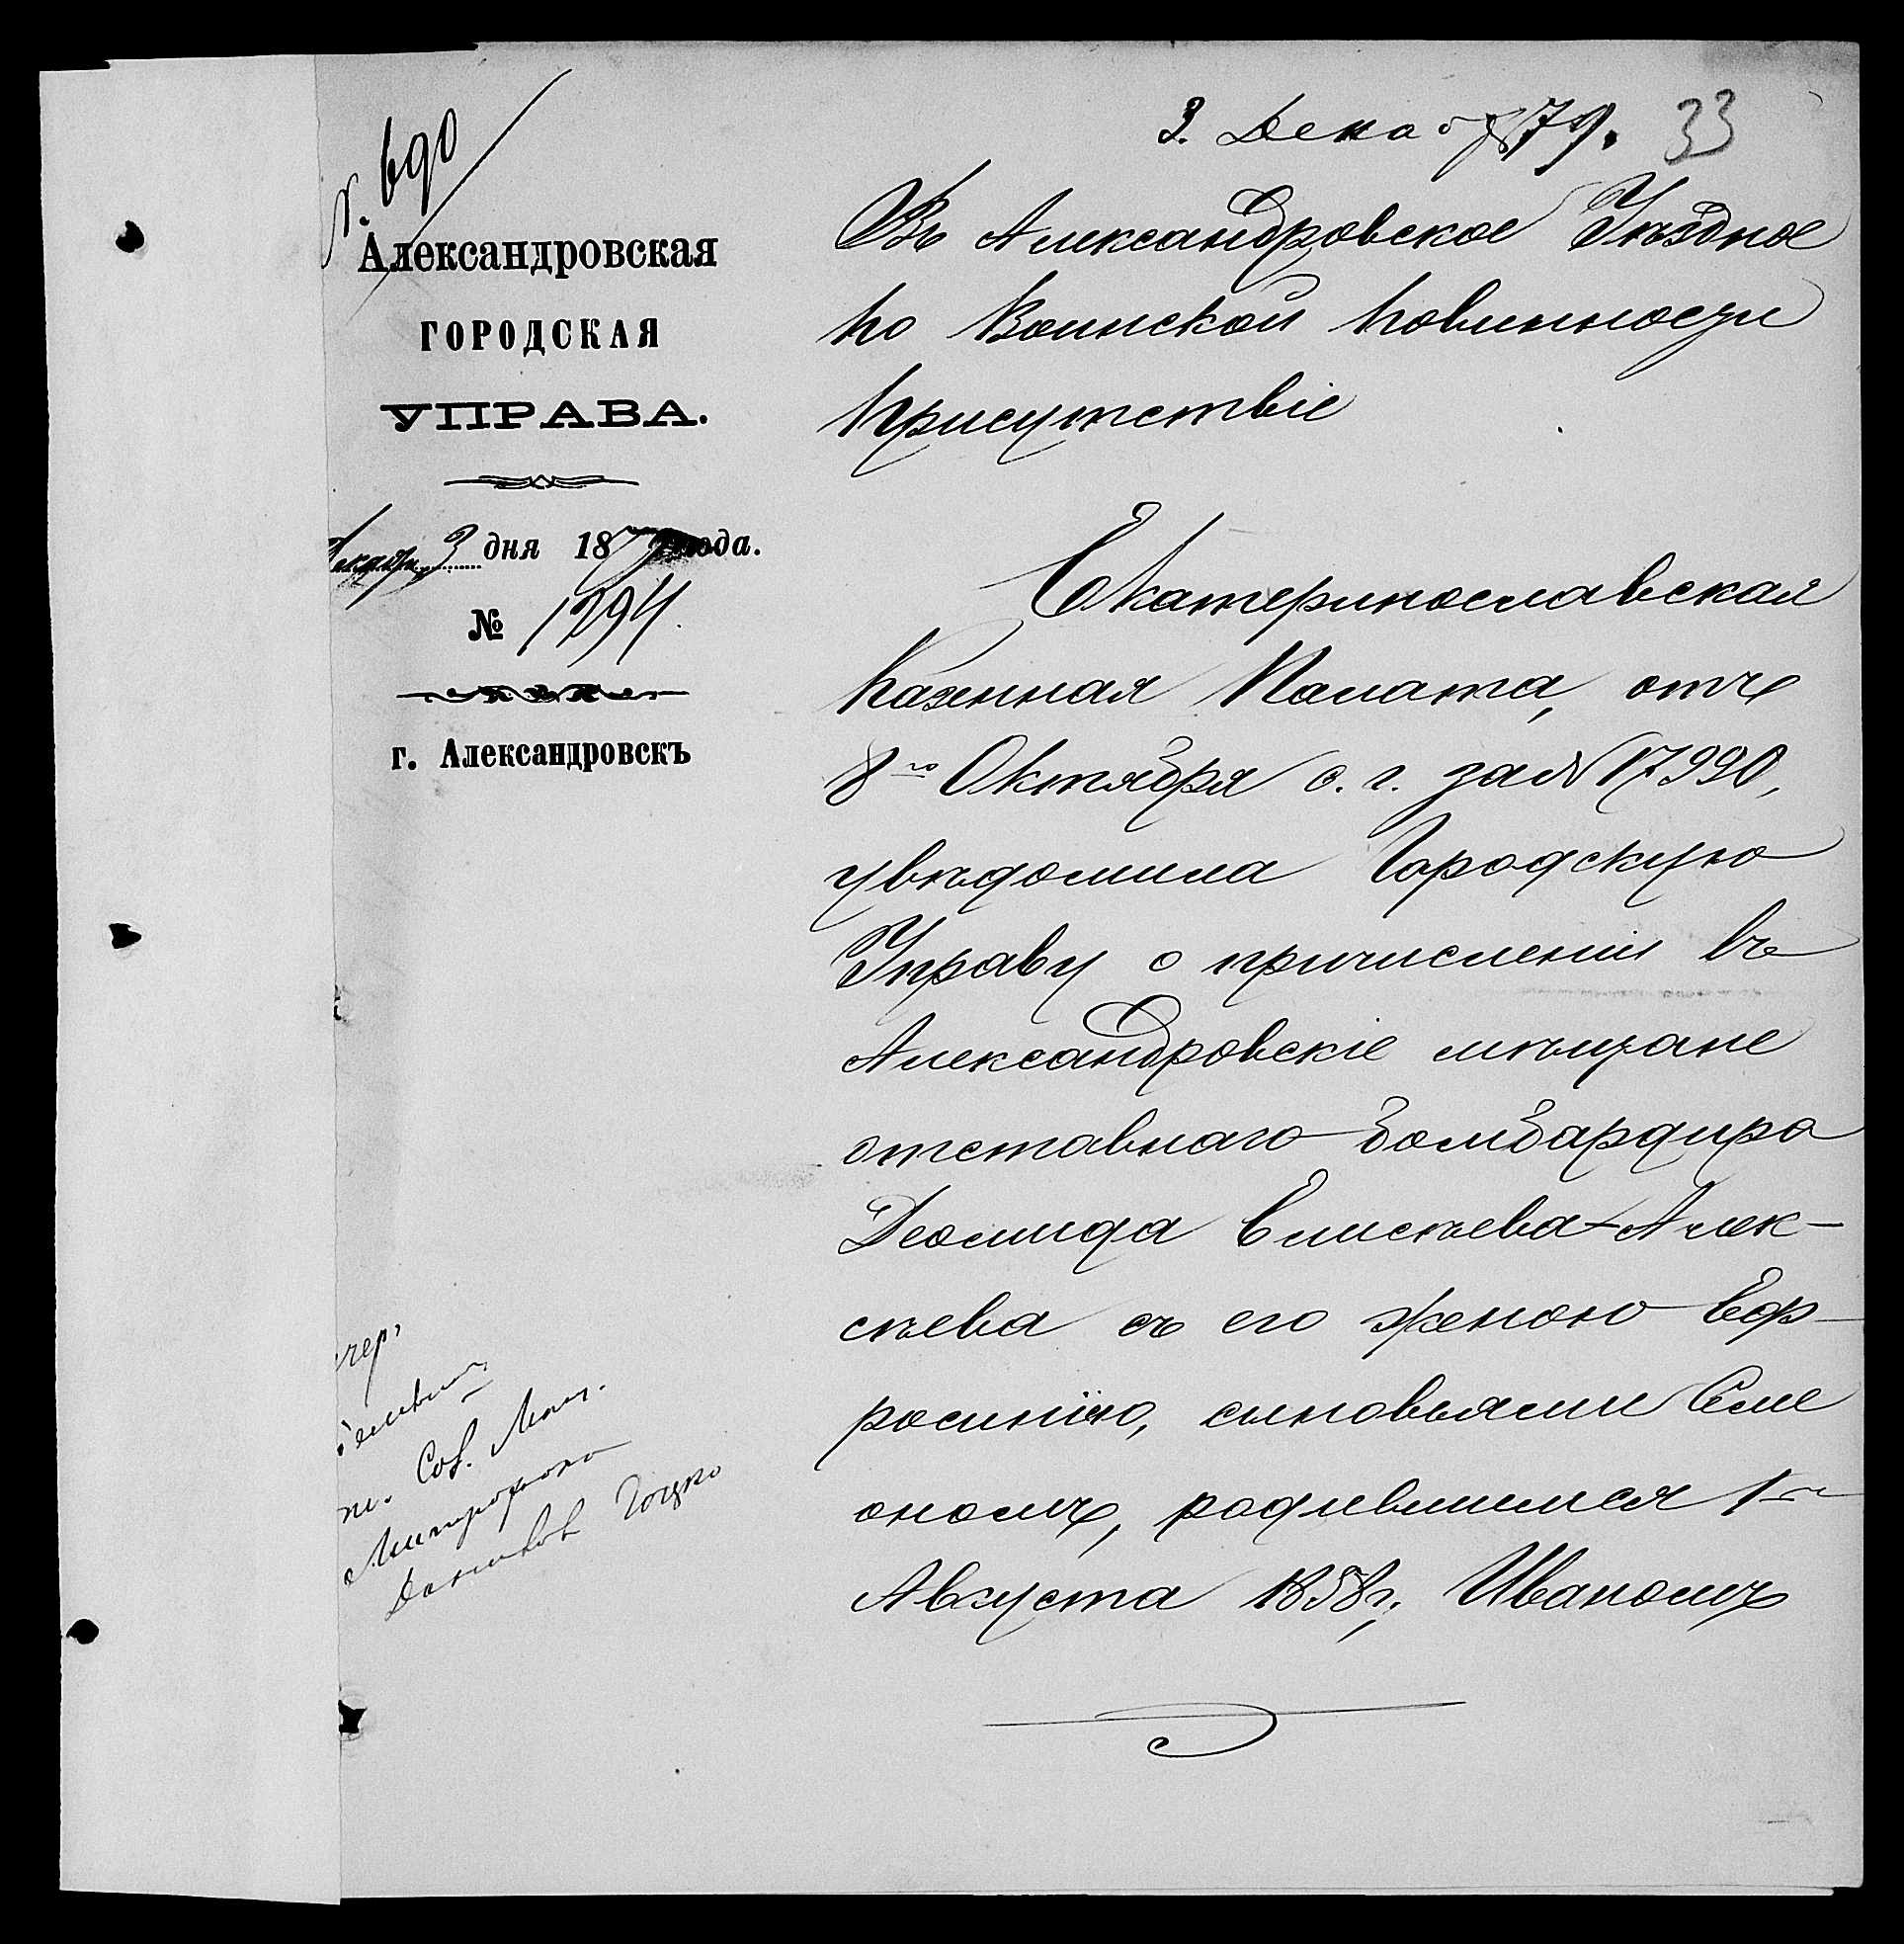 3. Декаб 79. 33
N. 690
Александровская
ГОРОДСКАЯ
УПРАВА.
Декабря 3 дня 1879 года.
№ 1294.
г. Александровскъ
Въ Александровское Уѣздное
по Воинской повинности
Присутствіе
Екатеринославская
Казенная Палата, отъ
8го Октября с. г. за N 17990,
увѣдомила Городскую
Управу о причисленіи въ
Александровскіе мѣщане
отставнаго бомбардира
Деомида Елисѣева Алек-
сѣева съ его женою Еф-
росиніею, сыновьями Семе
ономъ, родившимся 1го
Августа 1858 г., Иваномъ
Сов. Мат.
Митрофана